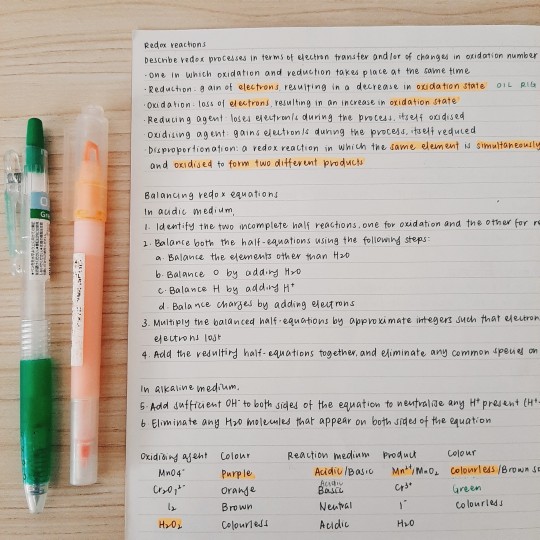 Redox reactions
Describe redox processes in terms of electron transfer and/or of changes in oxidation number
· One in which oxidation and reduction takes place at the same time
· Reduction: gain of electrons, resulting in a decrease in oxidation state OIL RIG
· Oxidation: loss of electrons, resulting in an increase in oxidation state
· Reducing agent: loses electron/s during the process, itself oxidised
· Oxidising agent: gains electron/s during the process, itself reduced
· Disproportionation: a redox reaction in which the same element is simultaneously
and oxidised to form two different products
Balancing redox equations
In acidic medium,
1. Identify the two incomplete half reactions, one for oxidation and the other for
2. Balance both the half-equations using the following steps:
a. Balance the elements other than H2O
b. Balance O by adding H2O
c. Balance H by adding H⁺
d. Balance charges by adding electrons
3. Multiply the balanced half-equations by approximate integers such that
electrons lost
4. Add the resulting half-equations together, and eliminate any common species on
In alkaline medium,
5. Add sufficient OH⁻ to both sides of the equation to neutralise any H⁺ present (H⁺
6. Eliminate any H2O molecules that appear on both sides of the equation
Oxidising agent Colour Reaction medium Product Colour
MnO4⁻ Purple Acidic/Basic Mn²⁺/MnO2 Colourless/Brown
Cr2O7²⁻ Orange Acidic Basic Cr³⁺ Green
I2 Brown Neutral I⁻ Colourless
H2O2 Colourless Acidic H2O